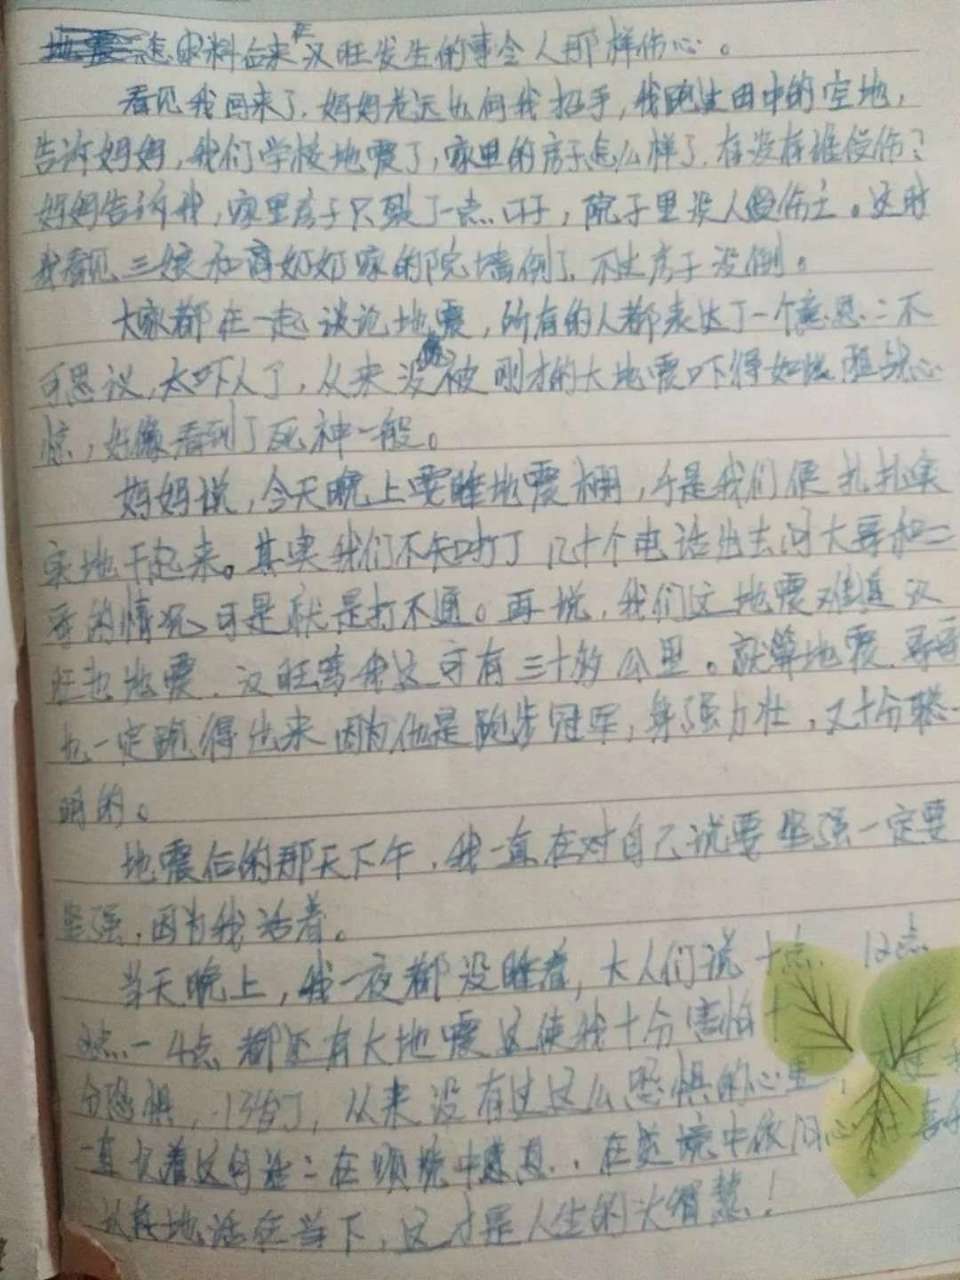 怎么料会来在汉旺发生的事令人那样伤心。
看见我回来了,妈妈老远也向我招手,我跑进田中的空地,
告诉妈妈,我们学校地震了,家里的房子怎么样了,有没有谁受伤?
妈妈告诉我,家里房子只裂了一点口子,院子里没人受伤亡。这时
我看见三娘和高奶奶家的院墙倒了,不过房子没倒。
大家都在一起谈论地震,所有的人都表达了一个意思:不
可思议,太吓人了,从来没被刚才的大地震吓得如此胆战心
惊,好像看到了死神一般。
妈妈说,今天晚上要睡地震棚,于是我们便扎扎实
实地干起来。其实我们不知打了几十个电话出去问大哥和二
哥的情况,可是就是打不通。再说,我们这地震难道汉
旺也地震,汉旺离我这可有三十多公里。就算地震,哥哥
也一定跑得出来因为他是跑步冠军,身强力壮,又十分聪
明的。
地震后的那天下午,我一直在对自己说要坚强一定要
坚强,因为我活着。
当天晚上,我一夜都没睡着,大人们说十点、12点
点—4点都还有大地震这使我十分害怕十
分恐惧,13岁了,从来没有过这么恐惧的心里,
一直记着这句话:在顺境中感恩,在逆境中依旧心
地活在当下,这才是人生的大智慧!